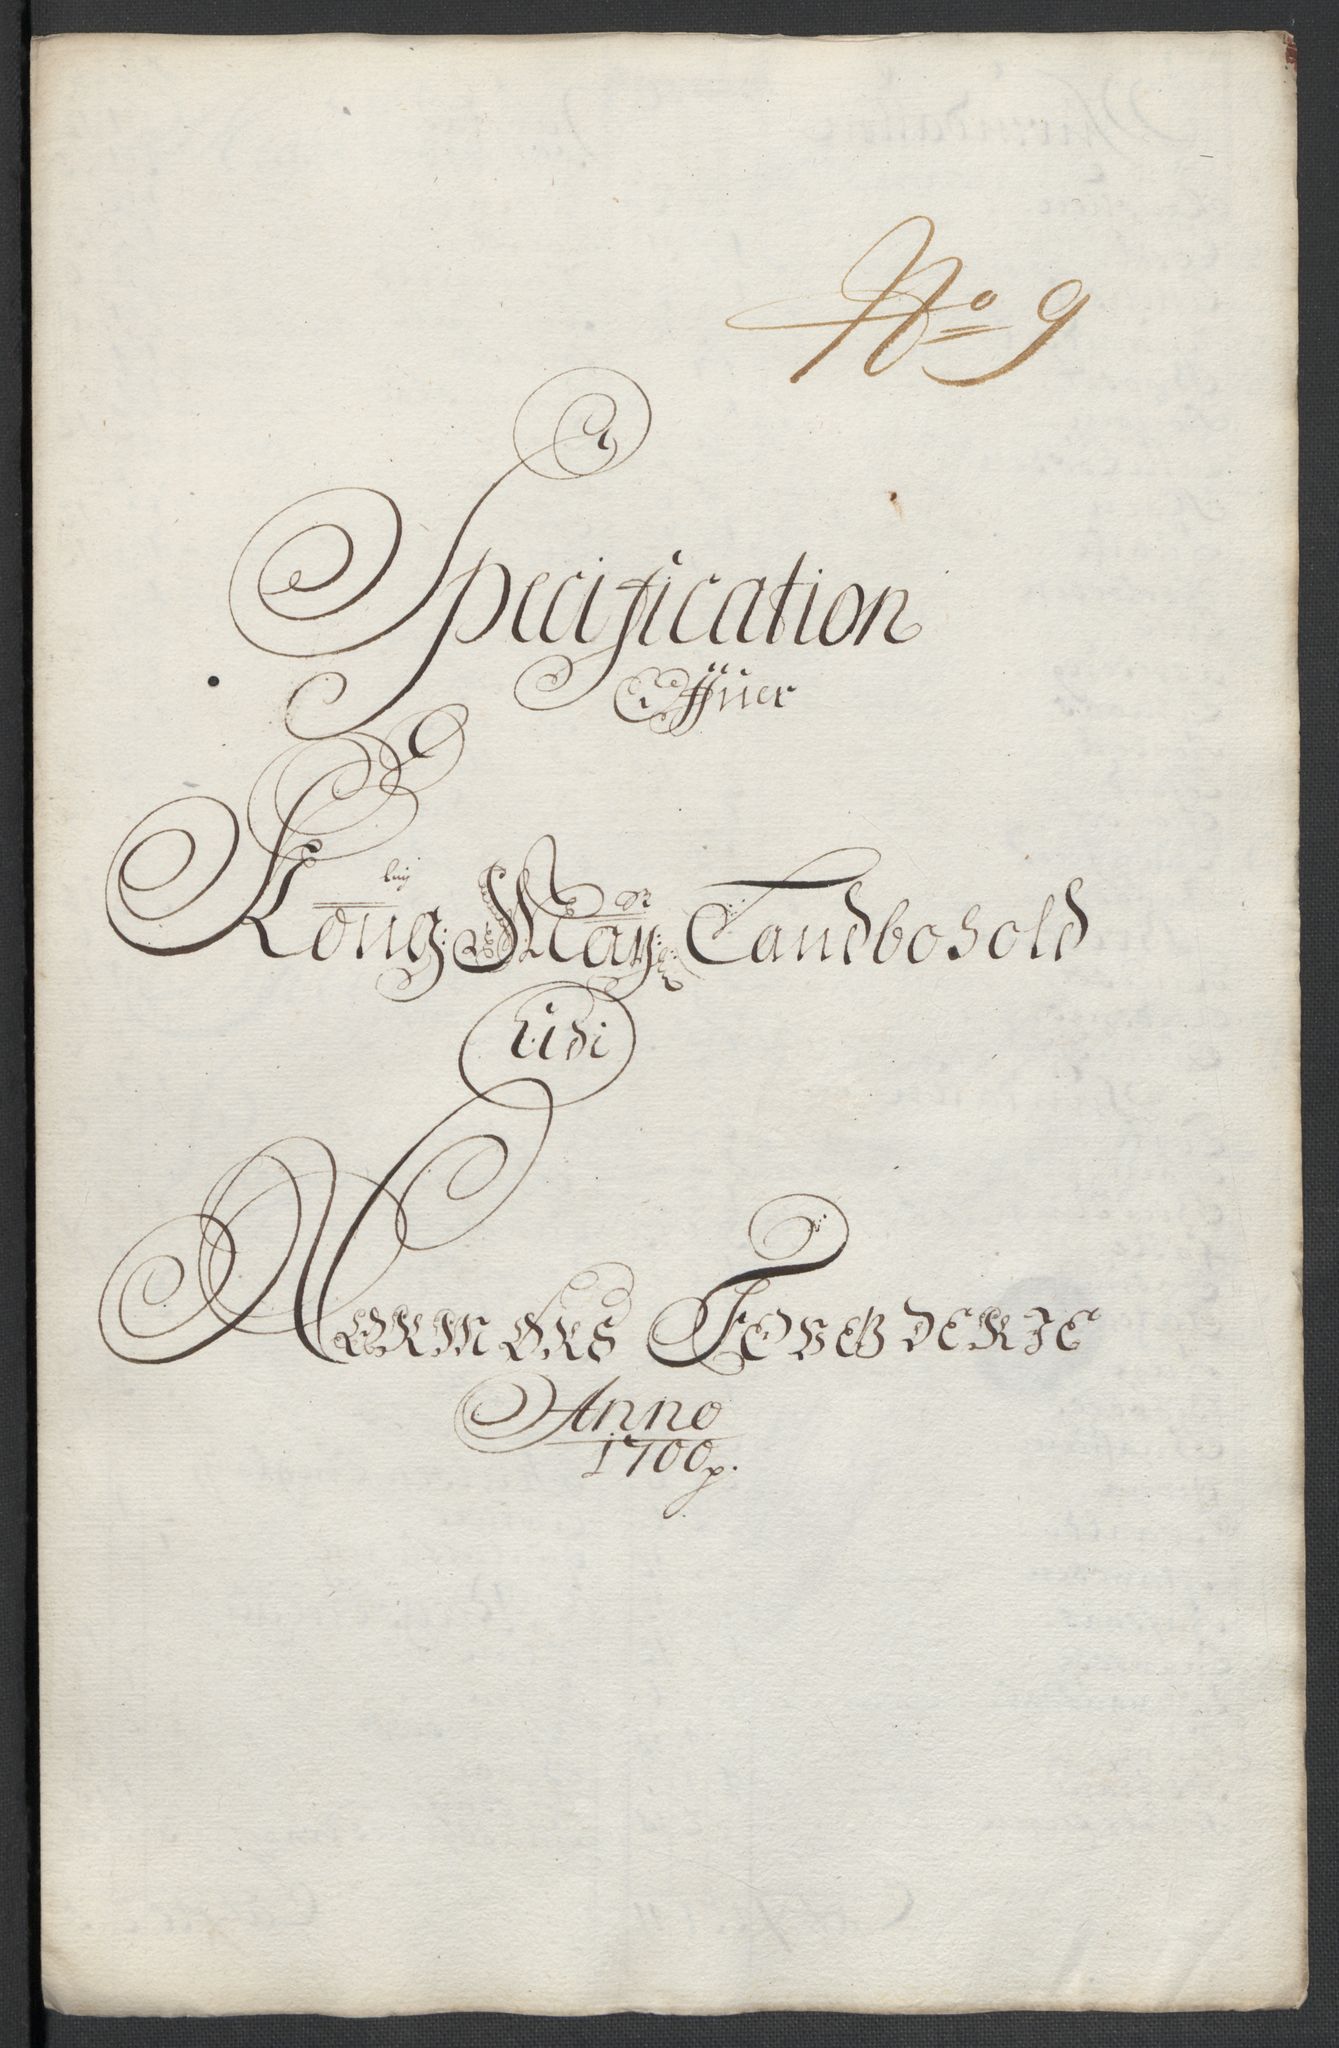 No 9
Specification
Offuer
Kong: May: Landbohold
Udi
Nordmørs Fogderie
Anno
1700